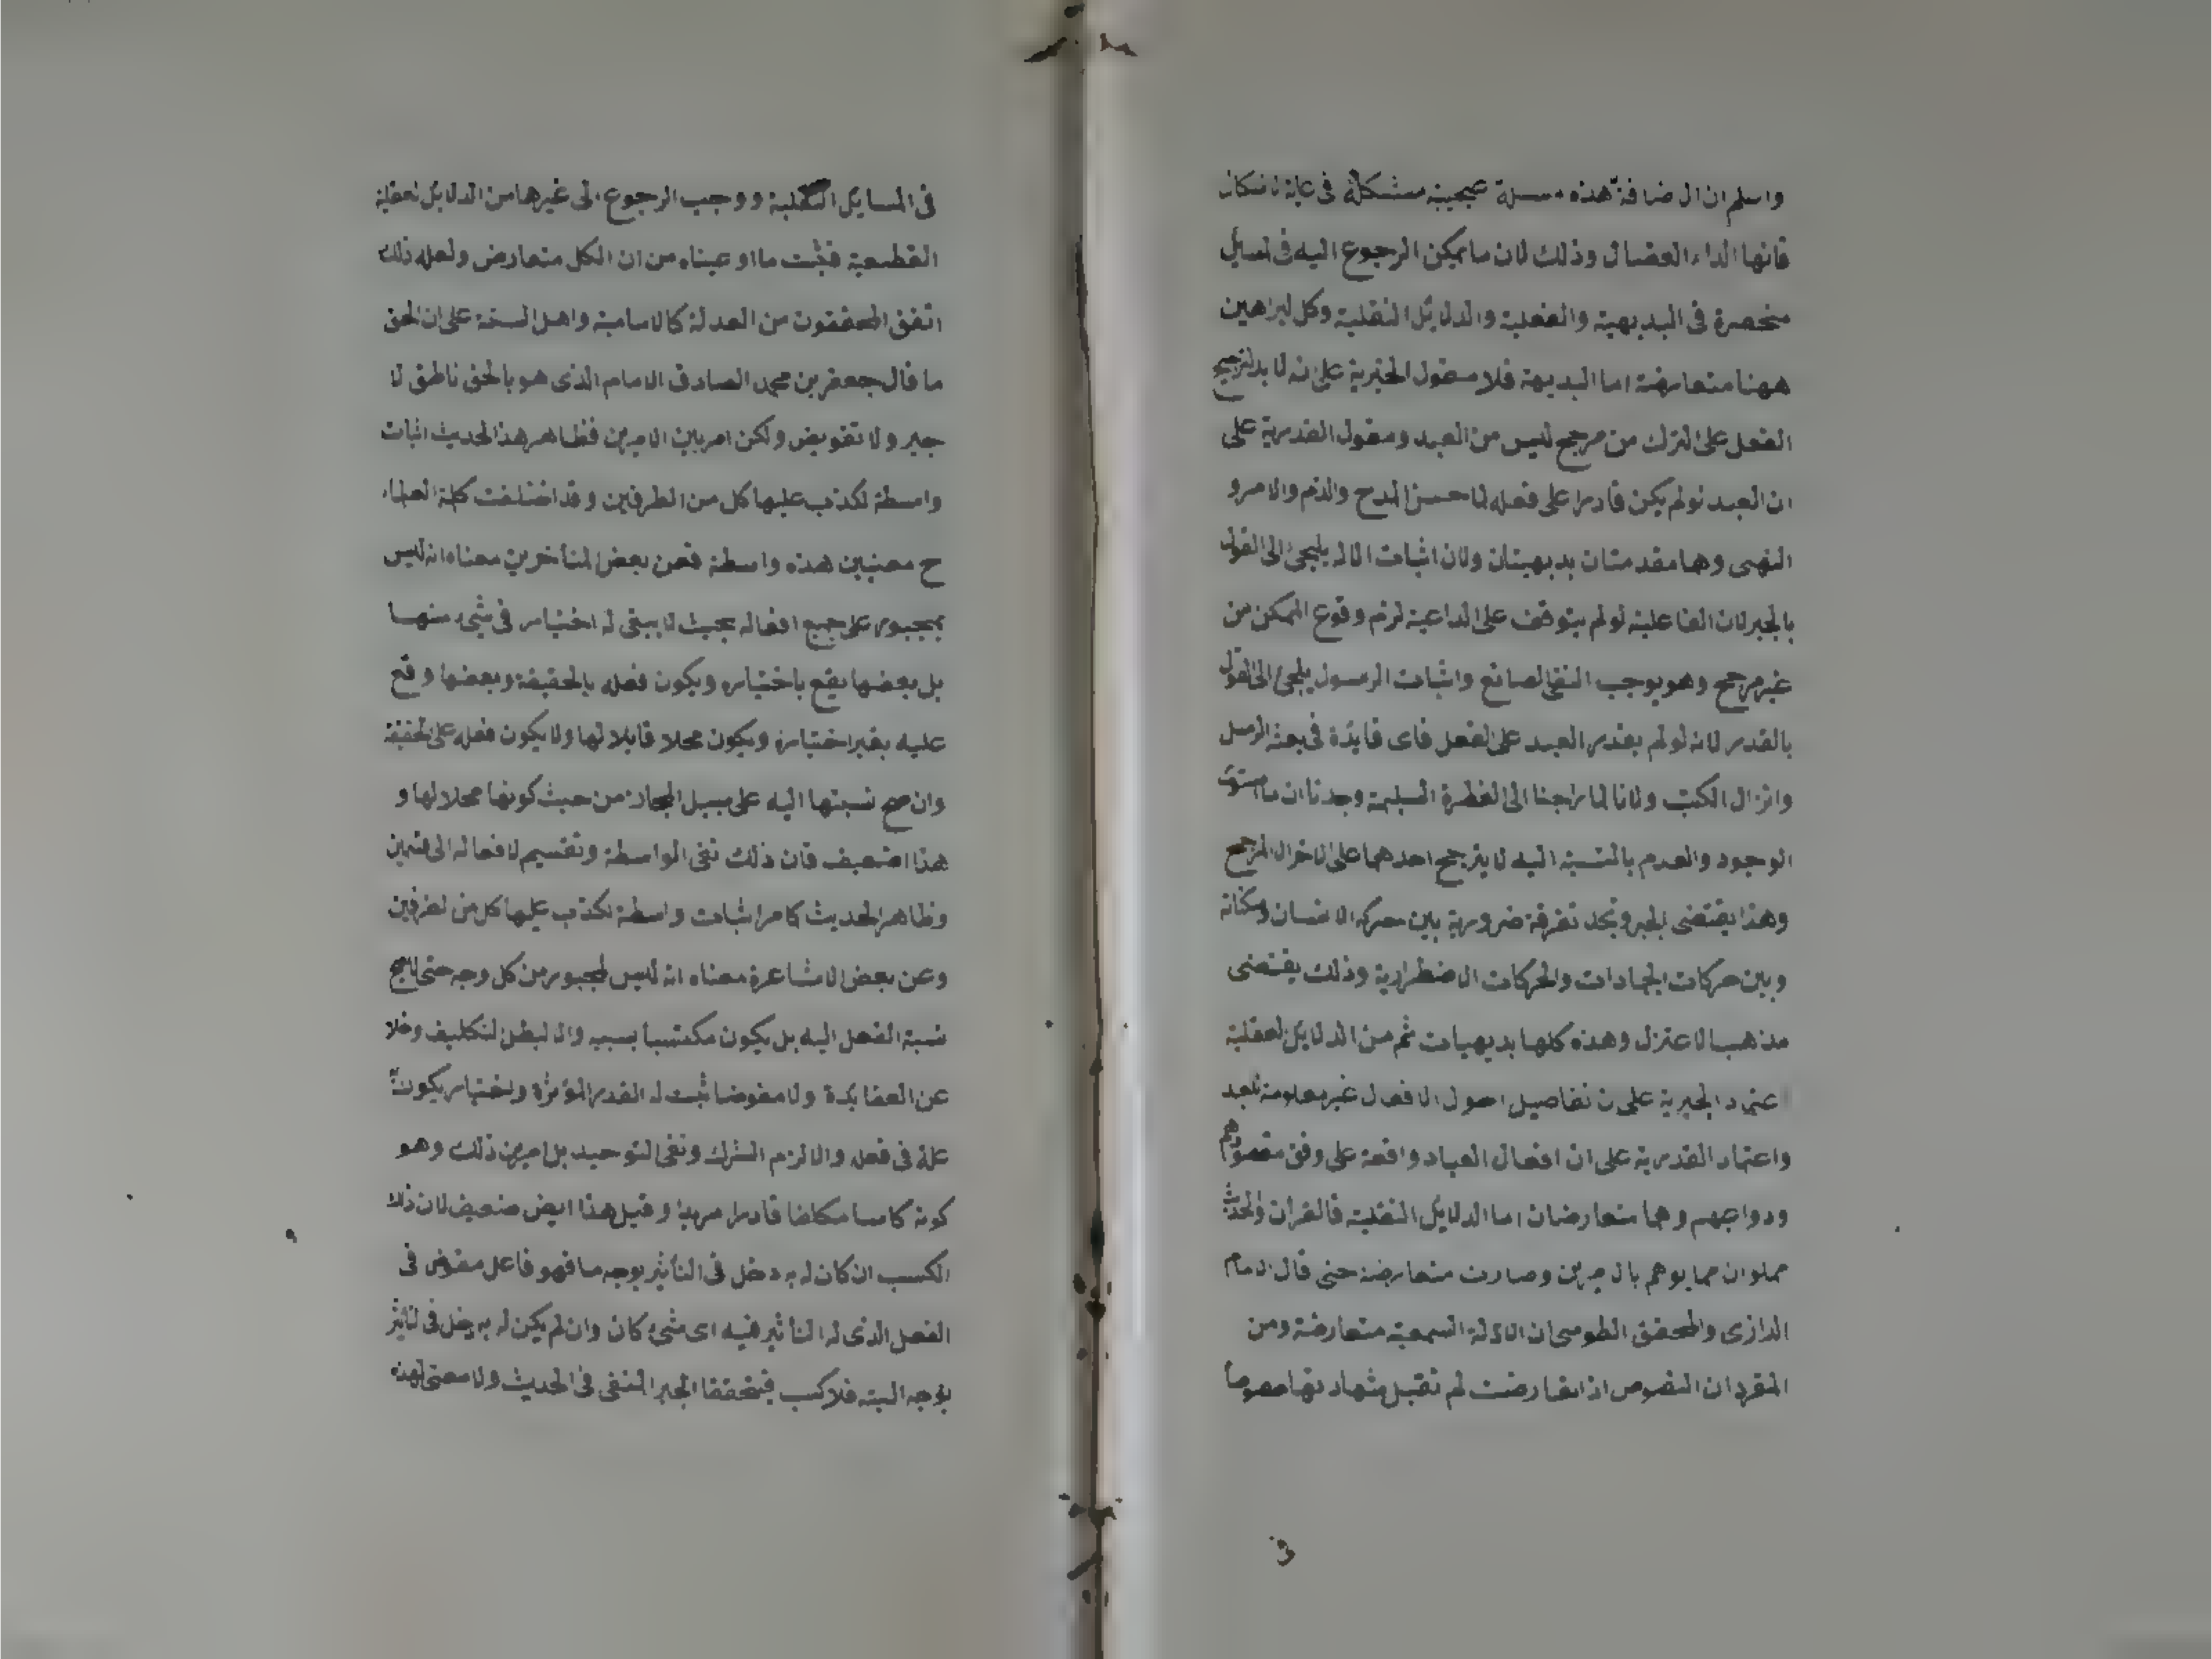 واسلم ان الضافة هذه مسلة عجيبة مشكلة فى غاية لاشكال
فانها الداء العضال وذلك لان ما يمكن الرجوع اليه فى لمسايل
منحصرة فى البديهية والعقلية والدلايل النقلية وكل لبراهين
ههنا متعارضة اما البديهة فلا معقول الجبرية على انه لا بد لترجيح
الفعل على لترك من مرجح ليس من العبد ومقول القدرية على
ان العبد لو لم يكن قادرا على فعله لما حسن المدح والذم والامر و
النهى وهما مقدمتان بديهيتان ولان اثبات الاله يلجئ الى القول
بالجبر لان الفاعلية لو لم يتوقف على الداعية لزم وقوع الممكن من
غير مرجح وهو يوجب النفى الصانع واثبات الرسول يلجئ الى القول
بالقدر لانه لو لم يقدر العبد على لفعل فاى فايدة فى بعثة الرسل
وانزال الكتب ولانا لما راجعنا الى الفطرة السليمة وجدنا ان ما استوى
الوجود والعدم بالنسبة اليه لا يترجح احدهما على الاخر الا لمرجح
وهذا يقتضى الجبر ونجد تفرقة ضرورية بين حركة الانسان وسكناته
وبين حركات الجمادات والحركات الاضطرارية وذلك يقتضى
مذهب الاعتزل وهذه كلها بديهيات ثم من الدلايل لعقلية
اعتماد الجبرية على ن تفاصيل احول الافعال غير معلومة لعبد
واعتماد القدرية على ان افعال العباد واقعة على وفق مقصودهم
ودواعيهم وهما متعارضان اما الدلايل النقلية فالقران والحديث
مملوان مما يوهم بالامرين وصارت متعارضة حتى قال الامام
الرازى والمحقق الطوسى ان الادلة السمعية متعارضة ومن
المقرر ان النصوص اذا تعارضت لم تقبل شهادتها خصوصا
فى المسايل العقلية ووجب الرجوع الى غيرها من الدلايل لعقلية
القطعية فثبت ما اوعيناه من ان الكل متعارض ولعله ذلك
اتفق المحققون من العدلة كالامامية واهل السنة على ان الحق
ما قال جعفر بن محمد الصادق الامام الذى هو بالحق ناطق لا
جبر ولا تفويض ولكن امر بين الامرين فظاهر هذا الحديث اثبات
واسطة لكذب عليها كل من الطرفين وقد اختلفت كلمة العلماء
ح معنيين هذه واسطة فعن بعض المتأخرين معناه انه ليس
بمجبور على جميع افعاله بحيث لا يبقى له اختيار فى شئ منها
بل بعضها يقع باختياره ويكون فعله بالحقيقة وبعضها وقع
عليه بغير اختياره ويكون محلا قابلا لها ولا يكون فعله على لحقيقة
وان صح نسبتها اليه على سبيل المجاز من حيث كونها محلا لها و
هذا ضعيف فان ذلك نفى الواسطة وتقسيم لافعاله الى قسمين
وظاهر الحديث كامر اثبات واسطة لكذب عليها كل من لطرفين
وعن بعض الاشاعرة معناه انه ليس لمجبور من كل وجه حتى لايصح
نسبة الفعل اليه بل يكون مكتسبا بسببه والا لبطل التكليف وخلا
عن العفايدة ولا مفوضا ثبت له القدر المؤثرة واختيار يكون
علة فى فعله والا لزم الشرك ونفى التوحيد بل امر بين ذلك وهو
كونه كاسبا مكلفا قادرا مريدا وقيل هذا ايض ضعيف لان ذلك
الكسب ان كان له به دخل فى التأثير بوجه ما فهو فاعل مفوض فى
الفعل الذى له التأثير فيه اى شئ كان وان لم يكن له به دخل فى لتاثير
بوجه البته فلا كسب فيتحققا الجبر المنفى فى الحديث ولا معنى لهذه
فى